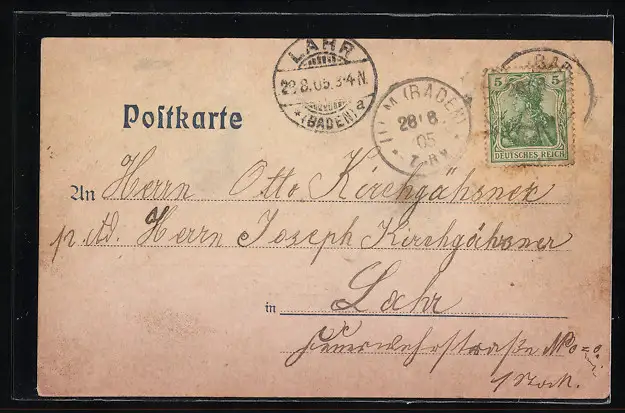 LAHR
28.8.05.3-4N.
*(BADEN)a
(BADEN)
28 8
05
5 5
DEUTSCHES REICH
Postkarte
An Herrn Otto Kirchgäßner
p. Ad. Herrn Joseph Kirchgäßner
in Lahr
Feuerwehrstraße No =
1 Stock.